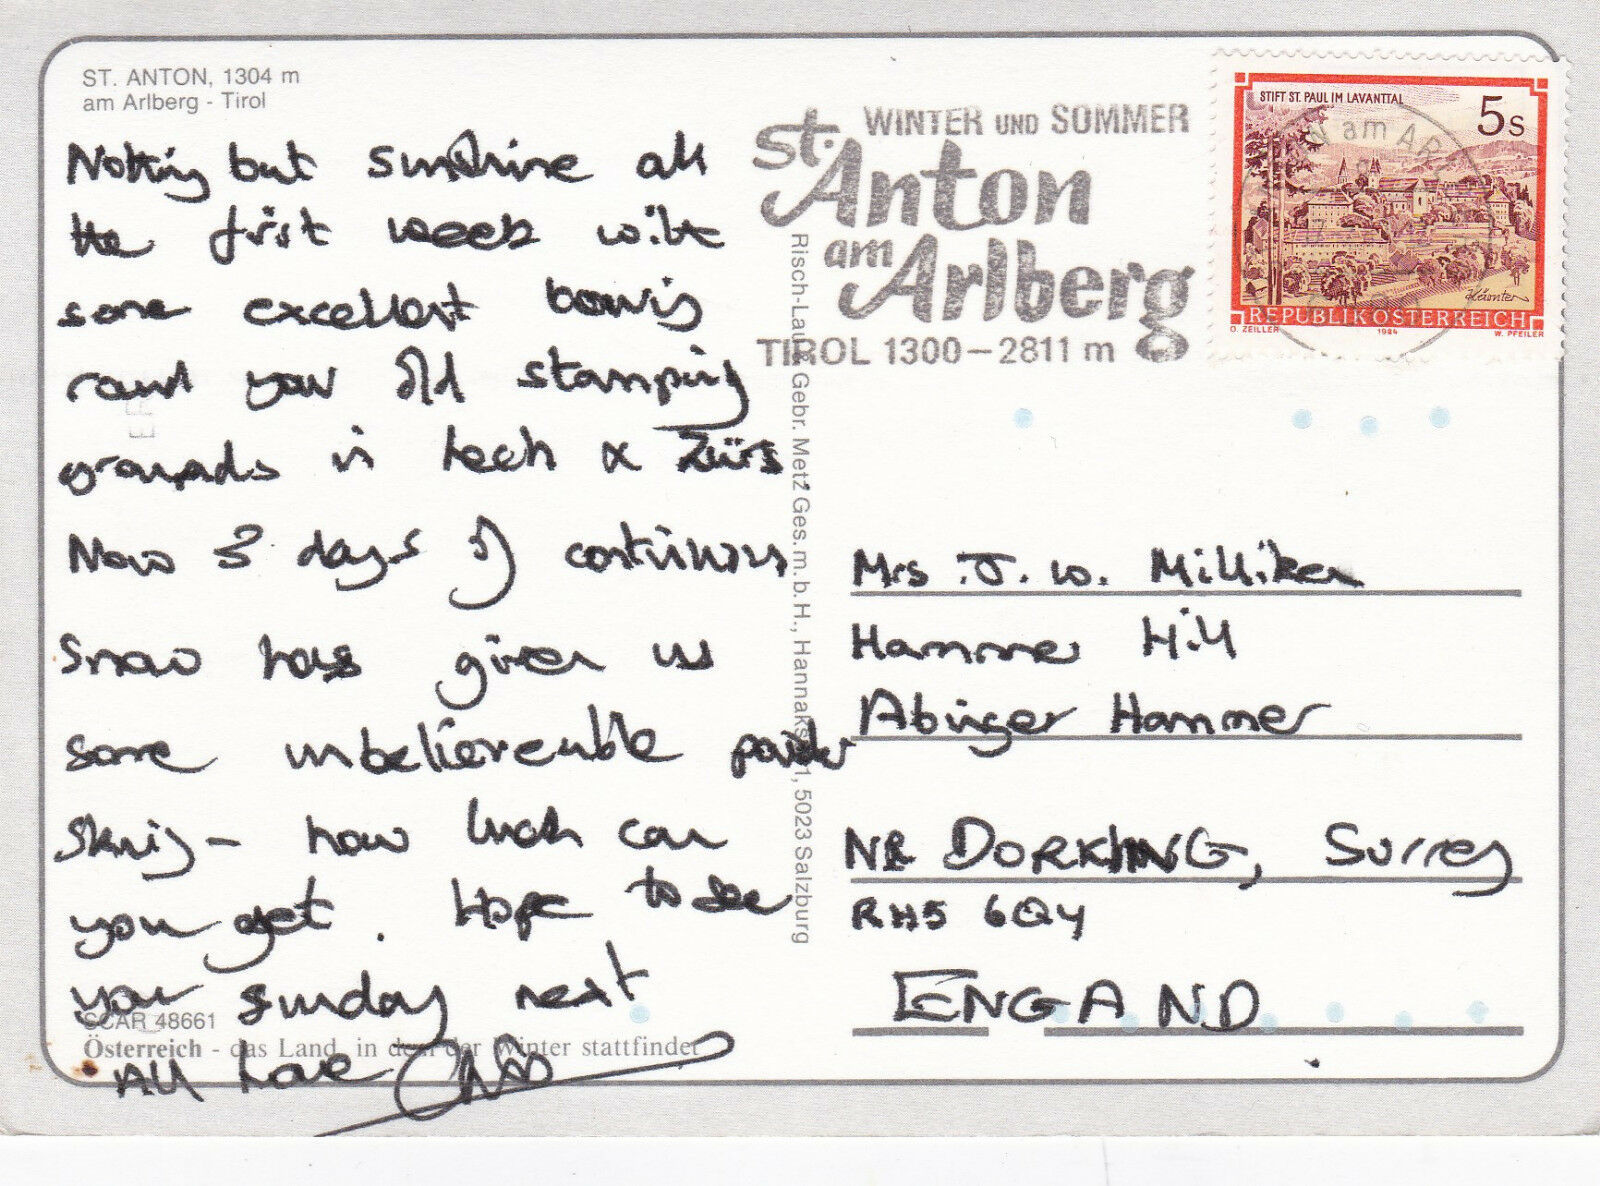 ST. ANTON, 1304 m
am Arlberg - Tirol
Nothing but sunshine all
the first week with
some excellent
round your old stamping
grounds in Lech & Zürs.
Now 3 days of continuous
Snow has given us
some unbelievable powder
Skiing - how much can
you get. Hope to see
you sunday next
All Love
SCAR 48661
Österreich - das Land, in dem der Winter stattfindet
Risch-Lau, Gebr. Metz Ges.m.b.H., 1, 5023 Salzburg
WINTER UND SOMMER
St. Anton
am Arlberg
TIROL 1300 - 2811 m
STIFT ST. PAUL IM LAVANTTAL
5s
Kärnten
REPUBLIK ÖSTERREICH
O. ZEILLER 1984 W. PFEILER
N am ARL
Mrs J. W. Milliken
Hammer Hill
Abinger Hammer
NR DORKING, Surrey
RH5 6QY
ENGAND